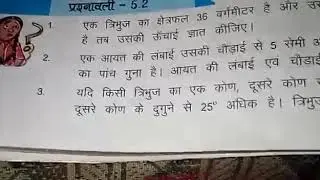 प्रश्नावली – 5.2
1. एक त्रिभुज का क्षेत्रफल 36 वर्गमीटर है और
है तब उसकी ऊँचाई ज्ञात कीजिए।
2. एक आयत की लंबाई उसकी चौड़ाई से 5 सेमी
का पांच गुना है। आयत की लंबाई एवं चौड़ाई
3. यदि किसी त्रिभुज का एक कोण, दूसरे कोण
दूसरे कोण के दुगुने से 25° अधिक है।